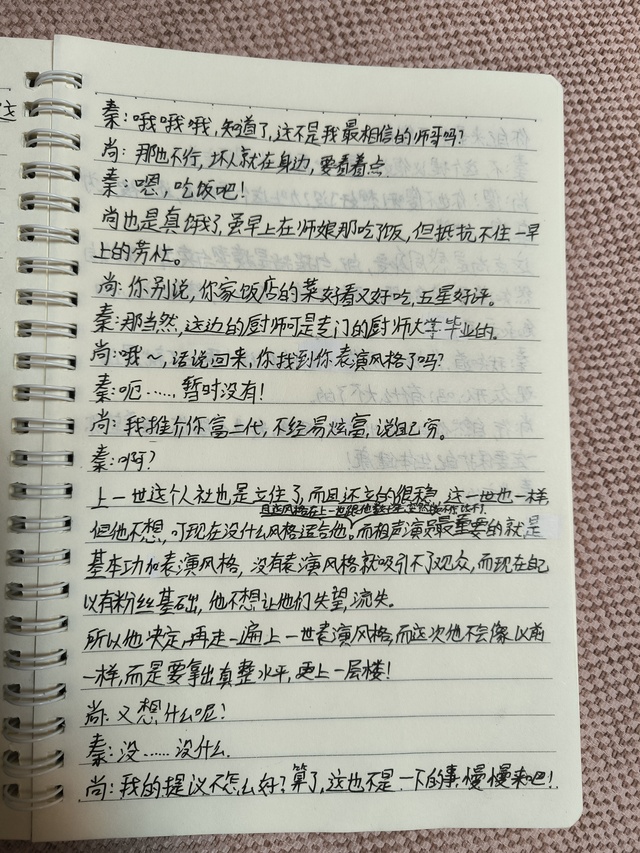 秦:哦哦哦,知道了,这不是我最相信的师哥吗?
尚:那也不行,坏人就在身边,要看着点
秦:嗯,吃饭吧!
尚也是真饿了,虽早上在师娘那吃了饭,但抵抗不住一早
上的劳忙。
尚:你别说,你家饭店的菜好看又好吃,五星好评。
秦:那当然,这边的厨师可是专门的厨师大学毕业的。
尚:哦~,话说回来,你找到你表演风格了吗?
秦:呃……暂时没有!
尚:我推介你富二代,不经易炫富,说自己穷。
秦:啊?
上一世这个人社也是立住了,而且还立的很稳,这一世也一样
且这风格在上一世跟他
但他不想,可现在没什么风格适合他,而相声演员最重要的就是
基本功和表演风格,没有表演风格就吸引不了观众,而现在自己
以有粉丝基础,他不想让他们失望,流失。
所以他决定,再走一遍上一世表演风格,而这次他不会像以前
一样,而是要拿出真整水平,更上一层楼!
尚:又想什么呢?
秦:没……没什么.
尚:我的提议不怎么好?算了,这也不是一下的事,慢慢来吧!